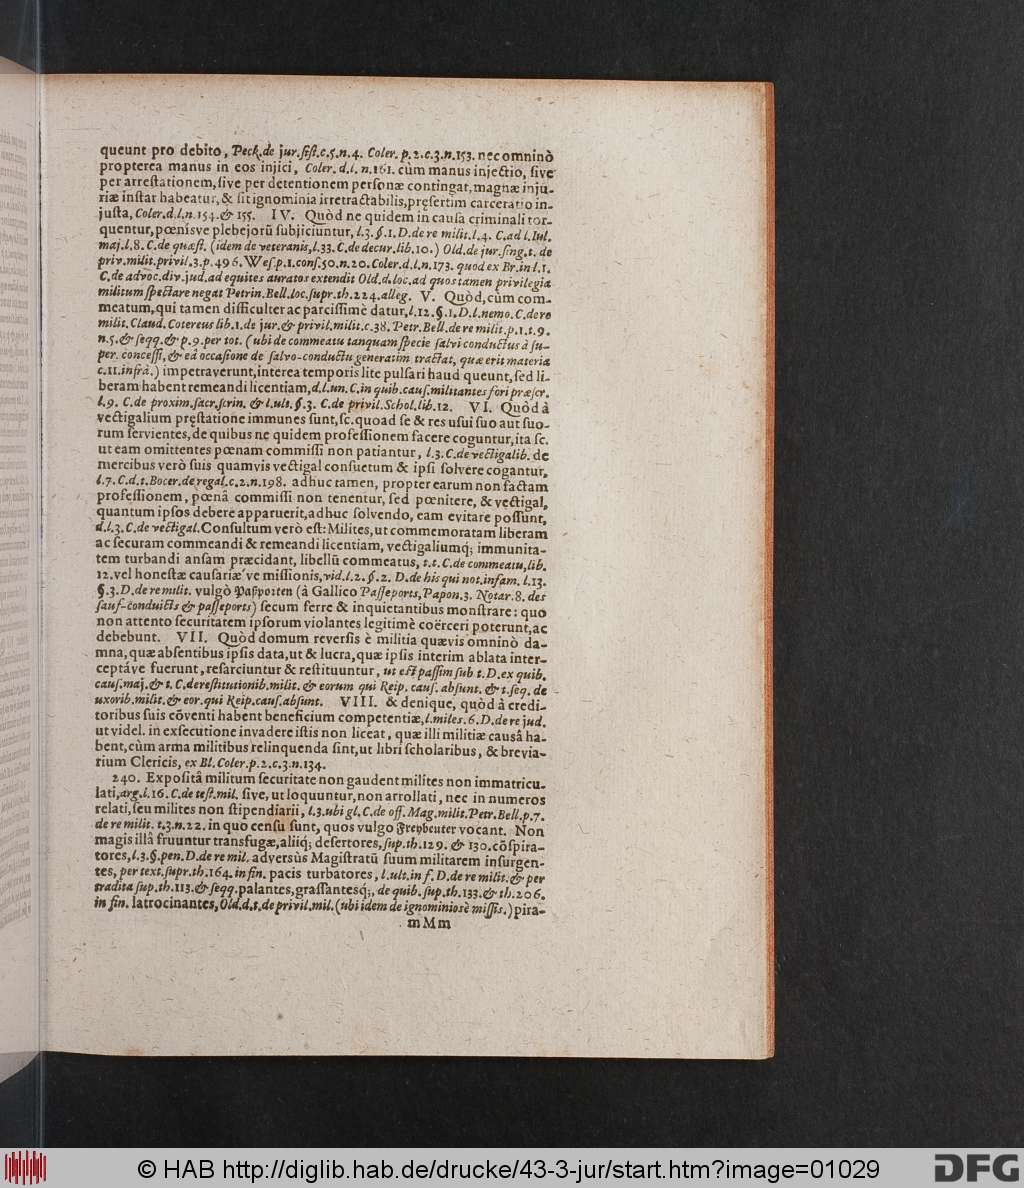 queunt pro debito, Peck. de jur. sist. c. 5. n. 4. Coler. p. 2. c. 3. n. 153. nec omninò
propterea manus in eos injici, Coler. d. l. n. 161. cùm manus injectio, sive
per arrestationem, sive per detentionem personæ contingat, magnæ inju-
riæ instar habeatur, & sit ignominia irretractabilis, pręsertim carceratio in-
justa, Coler. d. l. n. 154. & 155. IV. Quòd ne quidem in causa criminali tor-
quentur, pœnisve plebejorū subjiciuntur, l. 3. §. 1. D. de re milit. l. 4. C. ad l. Iul.
maj. l. 8. C. de quæst. (idem de veteranis, l. 33. C. de decur. lib. 10.) Old. de jur. sing. t. de
priv. milit. privil. 3. p. 496. Wes. p. 1. cons. 50. n. 20. Coler. d. l. n. 173. quod ex Br. in l. 1.
C. de advoc. div. jud. ad equites auratos extendit Old. d. loc. ad quos tamen privilegia
militum spectare negat Petrin. Bell. loc. supr. th. 224. alleg. V. Quòd, cùm com-
meatum, qui tamen difficulter ac parcissimè datur, l. 12. §. 1. D. l. nemo. C. de re
milit. Claud. Cotereus lib. 1. de jur. & privil. milit. c. 38. Petr. Bell. de re milit. p. 1. t. 9.
n. 5. & seqq. & p. 9. per tot. (ubi de commeatu tanquam specie salvi conductus à su-
per. concessi, & eâ occasione de salvo-conductu generatim tractat, quæ erit materia
c. 11. infrà.) impetraverunt, interea temporis lite pulsari haud queunt, sed li-
beram habent remeandi licentiam, d. l. un. C. in quib. caus. militantes fori præscr.
l. 9. C. de proxim. sacr. scrin. & l. ult. §. 3. C. de privil. Schol. lib. 12. VI. Quòd à
vectigalium pręstatione immunes sunt, sc. quoad se & res usui suo aut suo-
rum servientes, de quibus ne quidem professionem facere coguntur, ita sc.
ut eam omittentes pœnam commissi non patiantur, l. 3. C. de vectigalib. de
mercibus verò suis quamvis vectigal consuetum & ipsi solvere cogantur,
l. 7. C. d. t. Bocer. de regal. c. 2. n. 198. adhuc tamen, propter earum non factam
professionem, pœnâ commissi non tenentur, sed pœnitere, & vectigal,
quantum ipsos debere apparuerit, adhuc solvendo, eam evitare possunt,
d. l. 3. C. de vectigal. Consultum verò est: Milites, ut commemoratam liberam
ac securam commeandi & remeandi licentiam, vectigaliumq; immunita-
tem turbandi ansam præcidant, libellū commeatus, t. t. C. de commeatu, lib.
12. vel honestæ causariæ ve missionis, vid. l. 2. §. 2. D. de his qui not. infam. l. 13.
§. 3. D. de re milit. vulgò Paßporten (à Gallico Passeports, Papon. 3. Notar. 8. des
sauf-conduicts & passeports) secum ferre & inquietantibus monstrare: quo
non attento securitatem ipsorum violantes legitimè coërceri poterunt, ac
debebunt. VII. Quòd domum reversis è militia quævis omninò da-
mna, quæ absentibus ipsis data, ut & lucra, quæ ipsis interim ablata inter-
ceptáve fuerunt, resarciuntur & restituuntur, ut est passim sub t. D. ex quib.
caus. maj. & t. C. de restitutionib. milit. & eorum qui Reip. caus. absunt. & t. seq. de
uxorib. milit. & eor. qui Reip. caus. absunt. VIII. & denique, quòd à credi-
toribus suis cōventi habent beneficium competentiæ, l. miles. 6. D. de re jud.
ut videl. in exsecutione invadere istis non liceat, quæ illi militiæ causâ ha-
bent, cùm arma militibus relinquenda sint, ut libri scholaribus, & brevia-
rium Clericis, ex Bl. Coler. p. 2. c. 3. n. 134.
240. Expositâ militum securitate non gaudent milites non immatricu-
lati, arg. l. 16. C. de test. mil. sive, ut loquuntur, non arrollati, nec in numeros
relati, seu milites non stipendiarii, l. 3. ubi gl. C. de off. Mag. milit. Petr. Bell. p. 7.
de re milit. t. 3. n. 22. in quo censu sunt, quos vulgo Freybeuter vocant. Non
magis illâ fruuntur transfugæ, aliiq; desertores, sup. th. 129. & 130. cōspira-
tores, l. 3. §. pen. D. de re mil. adversùs Magistratū suum militarem insurgen-
tes, per text. supr. th. 164. in fin. pacis turbatores, l. ult. in f. D. de re milit. & per
tradita sup. th. 113. & seqq. palantes, grassantesq;, de quib. sup. th. 133. & th. 206.
in fin. latrocinantes, Old. d. t. de privil. mil. (ubi idem de ignominiosè missis.) pira-
mMm
© HAB http://diglib.hab.de/drucke/43-3-jur/start.htm?image=01029
DFG